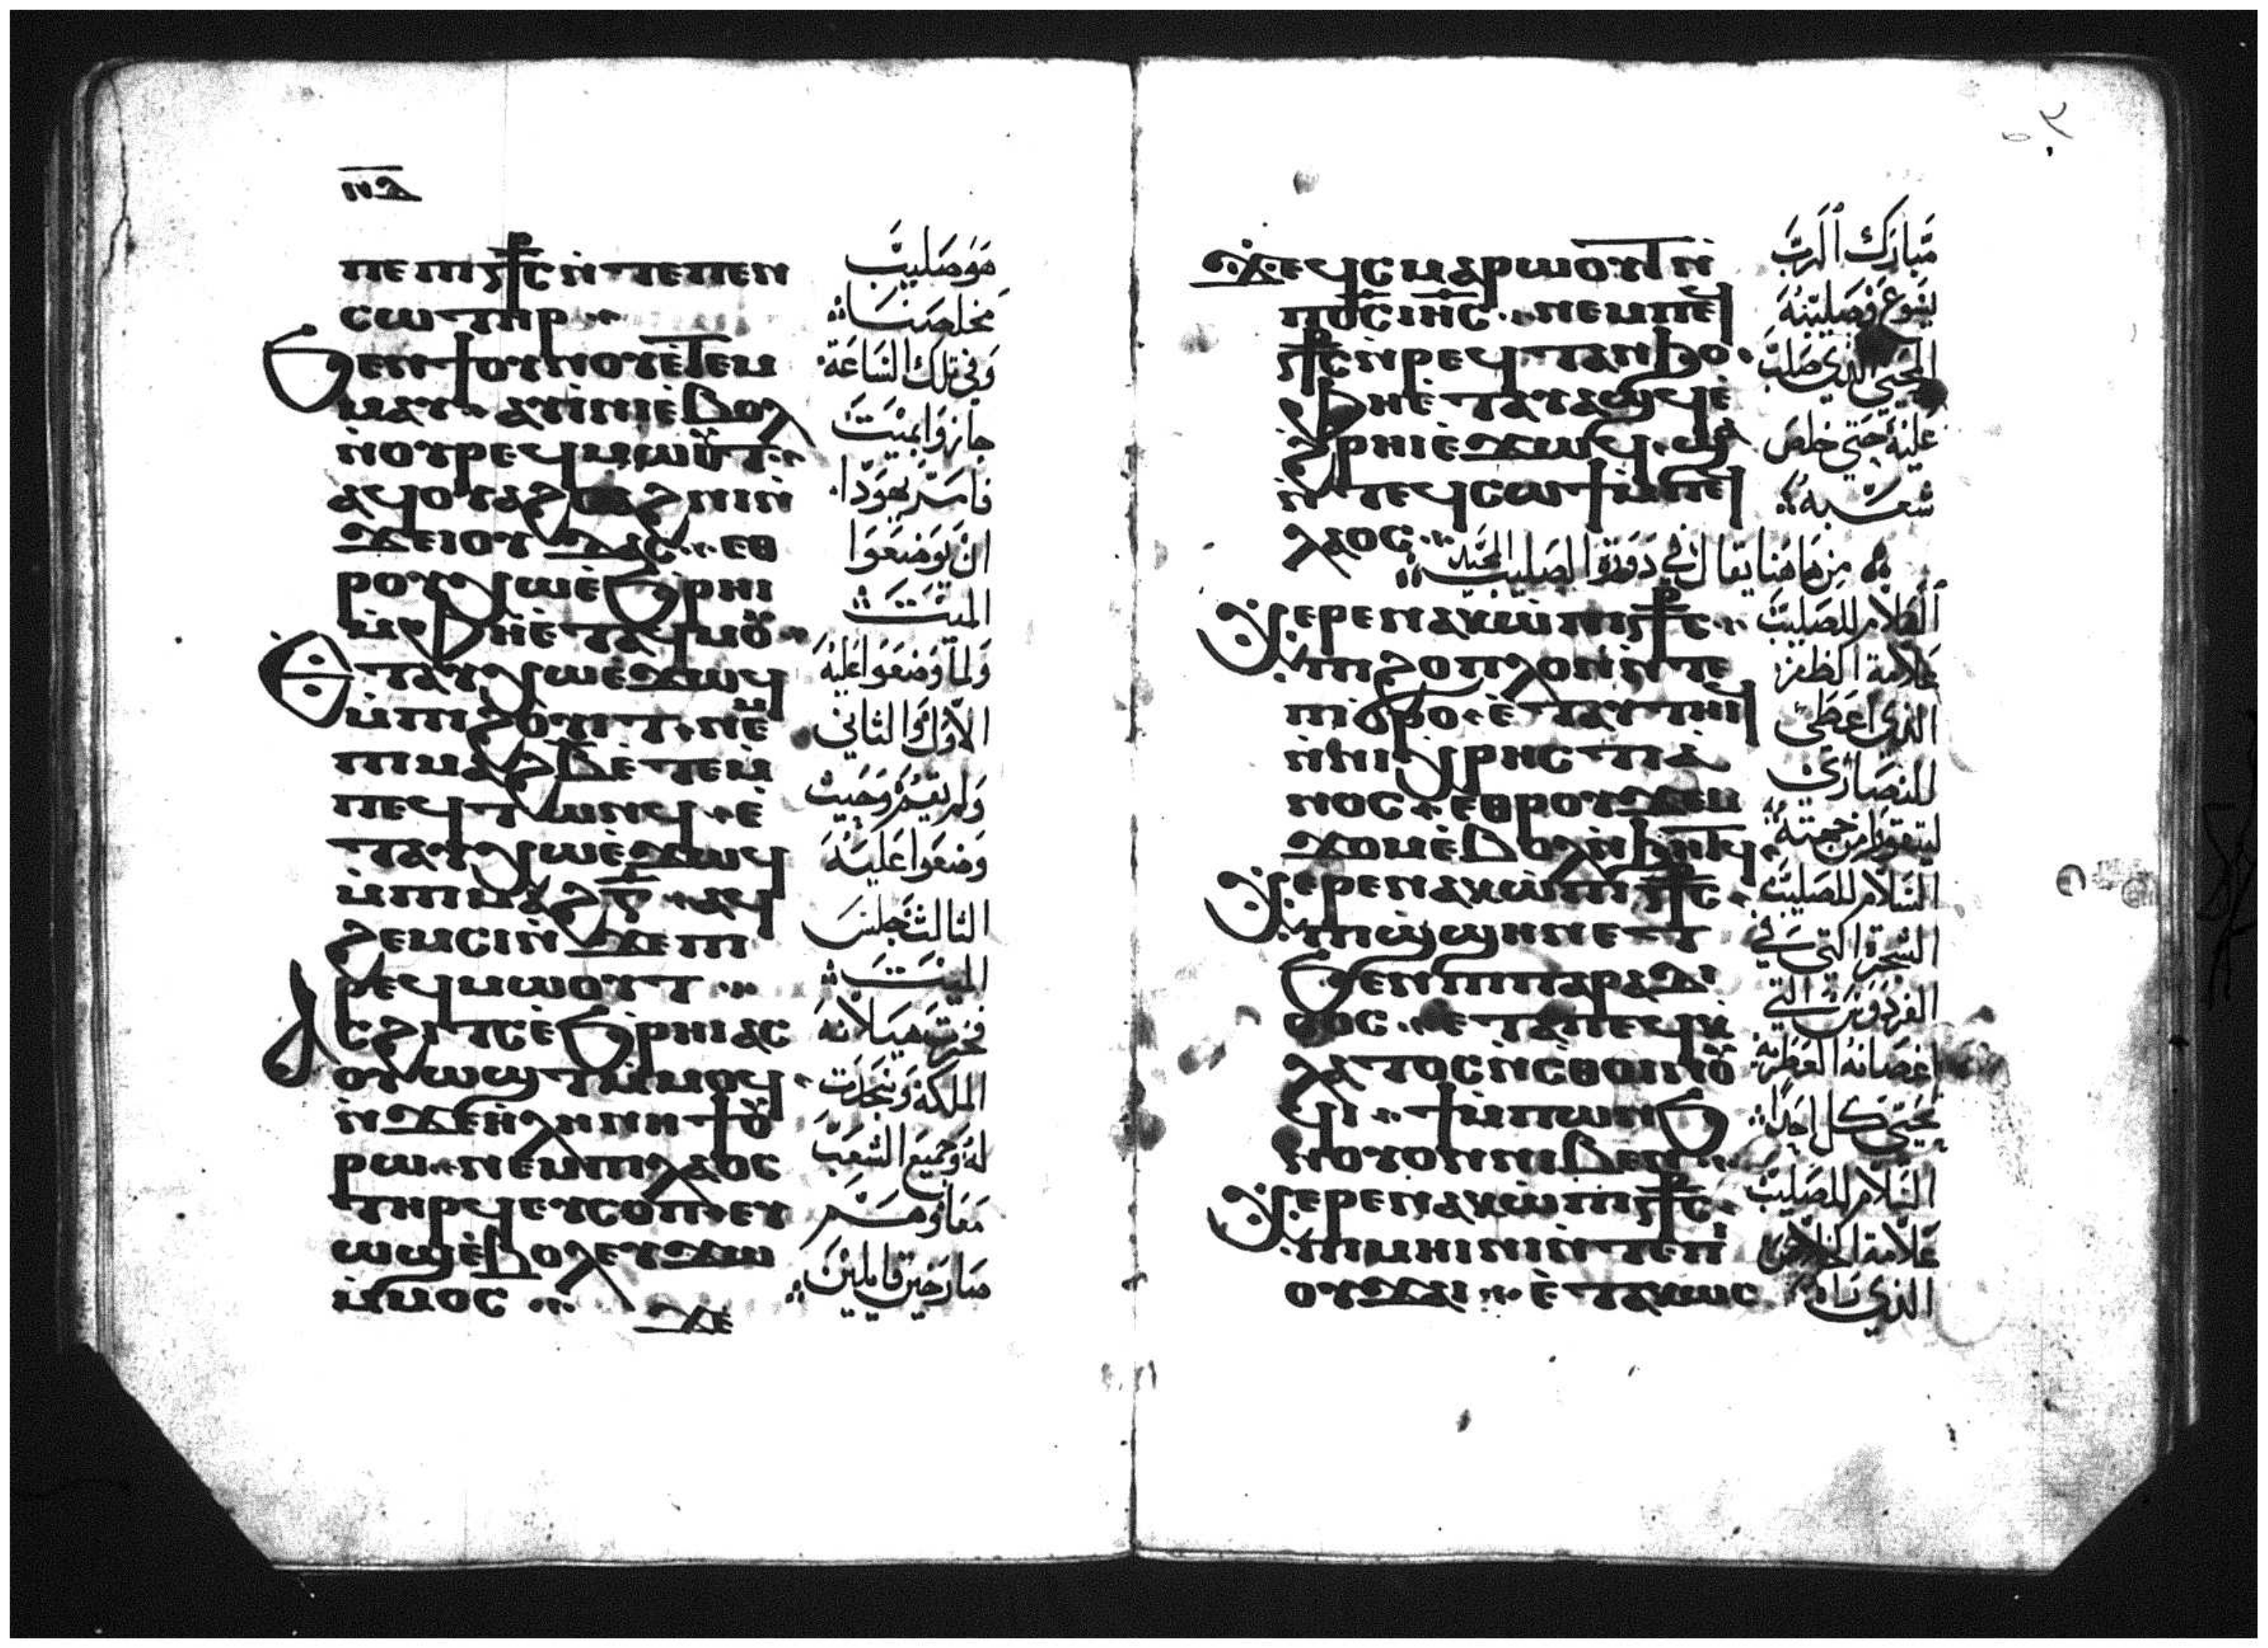 ⲛⲇ
ⲡⲉ ⲡⲓⲥ⳨ⲥ ⲛ̀ⲧⲉ ⲡⲉⲛ
ⲥⲱⲧⲏⲣ
ϧⲉⲛ ϯⲟⲩⲛⲟⲩ ⲉ̀ⲧⲉⲙ
ⲙⲁⲩ ⲁⲩⲓ̀ⲛⲓ ⲉ̀ⲃⲟⲗ
ⲛ̀ⲟⲩⲣⲉϥⲙⲱⲟⲩⲧ
ⲁϥⲟⲩⲁϩⲥⲁϩⲛⲓ ⲛ̀
ϫⲉ ⲓⲟⲩⲇⲁⲥ ⲉⲑ
ⲣⲟⲩⲭⲱ ⲉ̀ϧⲣⲏⲓ
ⲙ̀ⲫⲏ ⲉ̀ⲧⲁϥⲙⲟⲩ
ⲉⲧⲁⲩⲭⲱ ⲉϫⲱϥ
ⲙ̀ⲡⲓϩⲟⲩⲓⲧ ⲛⲉⲙ
ⲡⲓⲙⲁϩⲃ̅ ⲉ̀ⲧⲉⲙ
ⲡⲉϥⲧⲱⲛϥ ⲉ̀
ⲧⲁⲩⲭⲱ ⲉ̀ϫⲱϥ
ⲙ̀ⲡⲓⲙⲁϩⲅ̅ ⲁϥ
ϩⲉⲙⲥⲓ ⲛ̀ϫⲉ ⲡⲓ
ⲣⲉϥⲙⲱⲟⲩⲧ
ⲁⲥϩⲓⲧⲥ ⲉ̀ϧⲣⲏⲓ ⲁⲥ
ⲟⲩⲱϣⲧ ⲙ̀ⲙⲟϥ
ⲛ̀ϫⲉ ⲏ̀ⲗⲏⲛⲏ ϯⲟⲩ
ⲣⲱ ⲛⲉⲙ ⲡⲓⲗⲁⲟⲥ
ⲧⲏⲣϥ ⲉⲩⲥⲟⲡ ⲉⲩ
ⲱϣ ⲉ̀ⲃⲟⲗ ⲉⲩϫⲱ
ⲙ̀ⲙⲟⲥ
ϫⲉ
هو صليب
مخلصنا
وفي تلك الساعة
جازوا بميت
فامر يهودا
ان يوضعوا
الميت
ولما وضعوا عليه
الاول والثاني
ولم يقم وحيث
وضعوا عليه
الثالث جلس
الميت
فخرت هيلانه
الملكة وسجدت
له وجميع الشعب
معا وهم
صارخين قايلين
ϫⲉ ϥⲥⲙⲁⲣⲱⲟⲩⲧ ⲛ̀
ⲡⲟ̅ⲥ̅ ⲓⲏ̅ⲥ̅ ⲛⲉⲙ ⲡⲉϥ
ⲥ⳨ⲥ ⲛ̀ⲣⲉϥⲧⲁⲛϧⲟ
ⲫⲏ ⲉ̀ⲧⲁⲩⲁϣϥ ⲉ̀
ϩⲣⲏⲓ ⲉ̀ϫⲱϥ ϣⲁ
ⲛ̀ⲧⲉϥⲥⲱϯ ⲙ̀ⲡⲉϥ
ⲗⲁⲟⲥ
من هاهنا يقال في دورة الصليب المجيد
ⲭⲉⲣⲉ ⲛⲁⲕ ⲱ̀ ⲡⲓⲥ⳨ⲥ
ⲡⲓϩⲟⲡⲗⲟⲛ ⲛ̀ⲧⲉ
ⲡⲓϭⲣⲟ ⲉ̀ⲧⲁⲩⲧⲏⲓϥ
ⲛ̀ⲛⲓⲭⲣⲏⲥⲧⲓⲁ
ⲛⲟⲥ ⲉⲑⲣⲟⲩϫⲉⲙ
ϫⲟⲙ ⲉ̀ⲃⲟⲗ ⲛ̀ϧⲏⲧϥ
ⲭⲉⲣⲉ ⲛⲁⲕ ⲱ̀ ⲡⲓⲥ⳨ⲥ
ⲡⲓϣϣⲏⲛ ⲉⲧ
ϧⲉⲛ ⲡⲓⲡⲁⲣⲁⲇⲓ
ⲥⲟⲥ ⲉⲧⲁ ⲡⲉϥⲕ
ⲗⲁⲧⲟⲥ ⲛ̀ⲥⲑⲟⲓⲛⲟⲩ
ϥⲓ ϯ ⲙ̀ⲡⲱⲛϧ
ⲛ̀ⲟⲩⲟⲛ ⲛⲓⲃⲉⲛ
ⲭⲉⲣⲉ ⲛⲁⲕ ⲱ̀ ⲡⲓⲥ⳨ⲥ
ⲡⲓⲙⲏⲓⲛⲓ ⲛ̀ⲧⲉ ⲡⲓ
ⲟⲩϫⲁⲓ ⲉ̀ⲧⲁ
مبارك الرب
يسوع وصليبه
المحيي الذي صلب
عليه حتى خلص
شعبه
السلام للصليب
علامة الظفر
الذي اعطي
للنصارى
السلام للصليب
الشجرة التي في
الفردوس التي
اغصانه العطرة
تحيي كل احد
السلام للصليب
علامة الخلاص
الذي